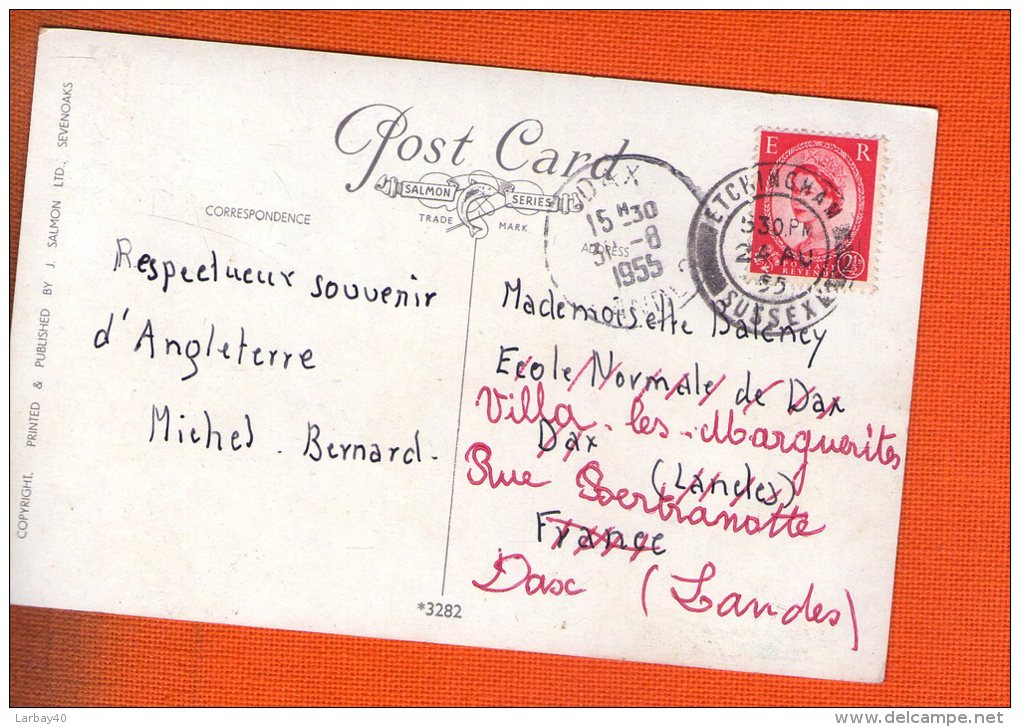 Post Card
SALMON SERIES
TRADE MARK
CORRESPONDENCE
ADDRESS
Respectueux souvenir
d'Angleterre
Michel Bernard.
COPYRIGHT. PRINTED & PUBLISHED BY J. SALMON LTD., SEVENOAKS
DAX
15 H 30
31 -8
1955
E R
POSTAGE
REVENUE
2½
ETCHINGHAM
530 PM
AU
55
SUSSEX
Mademoiselle Balency
Ecole Normale de Dax
Villa - les - Marguerites
Dax
(Landes)
Rue Bertranotte
France
Dax (Landes)
*3282
Larbay40
www.delcampe.net